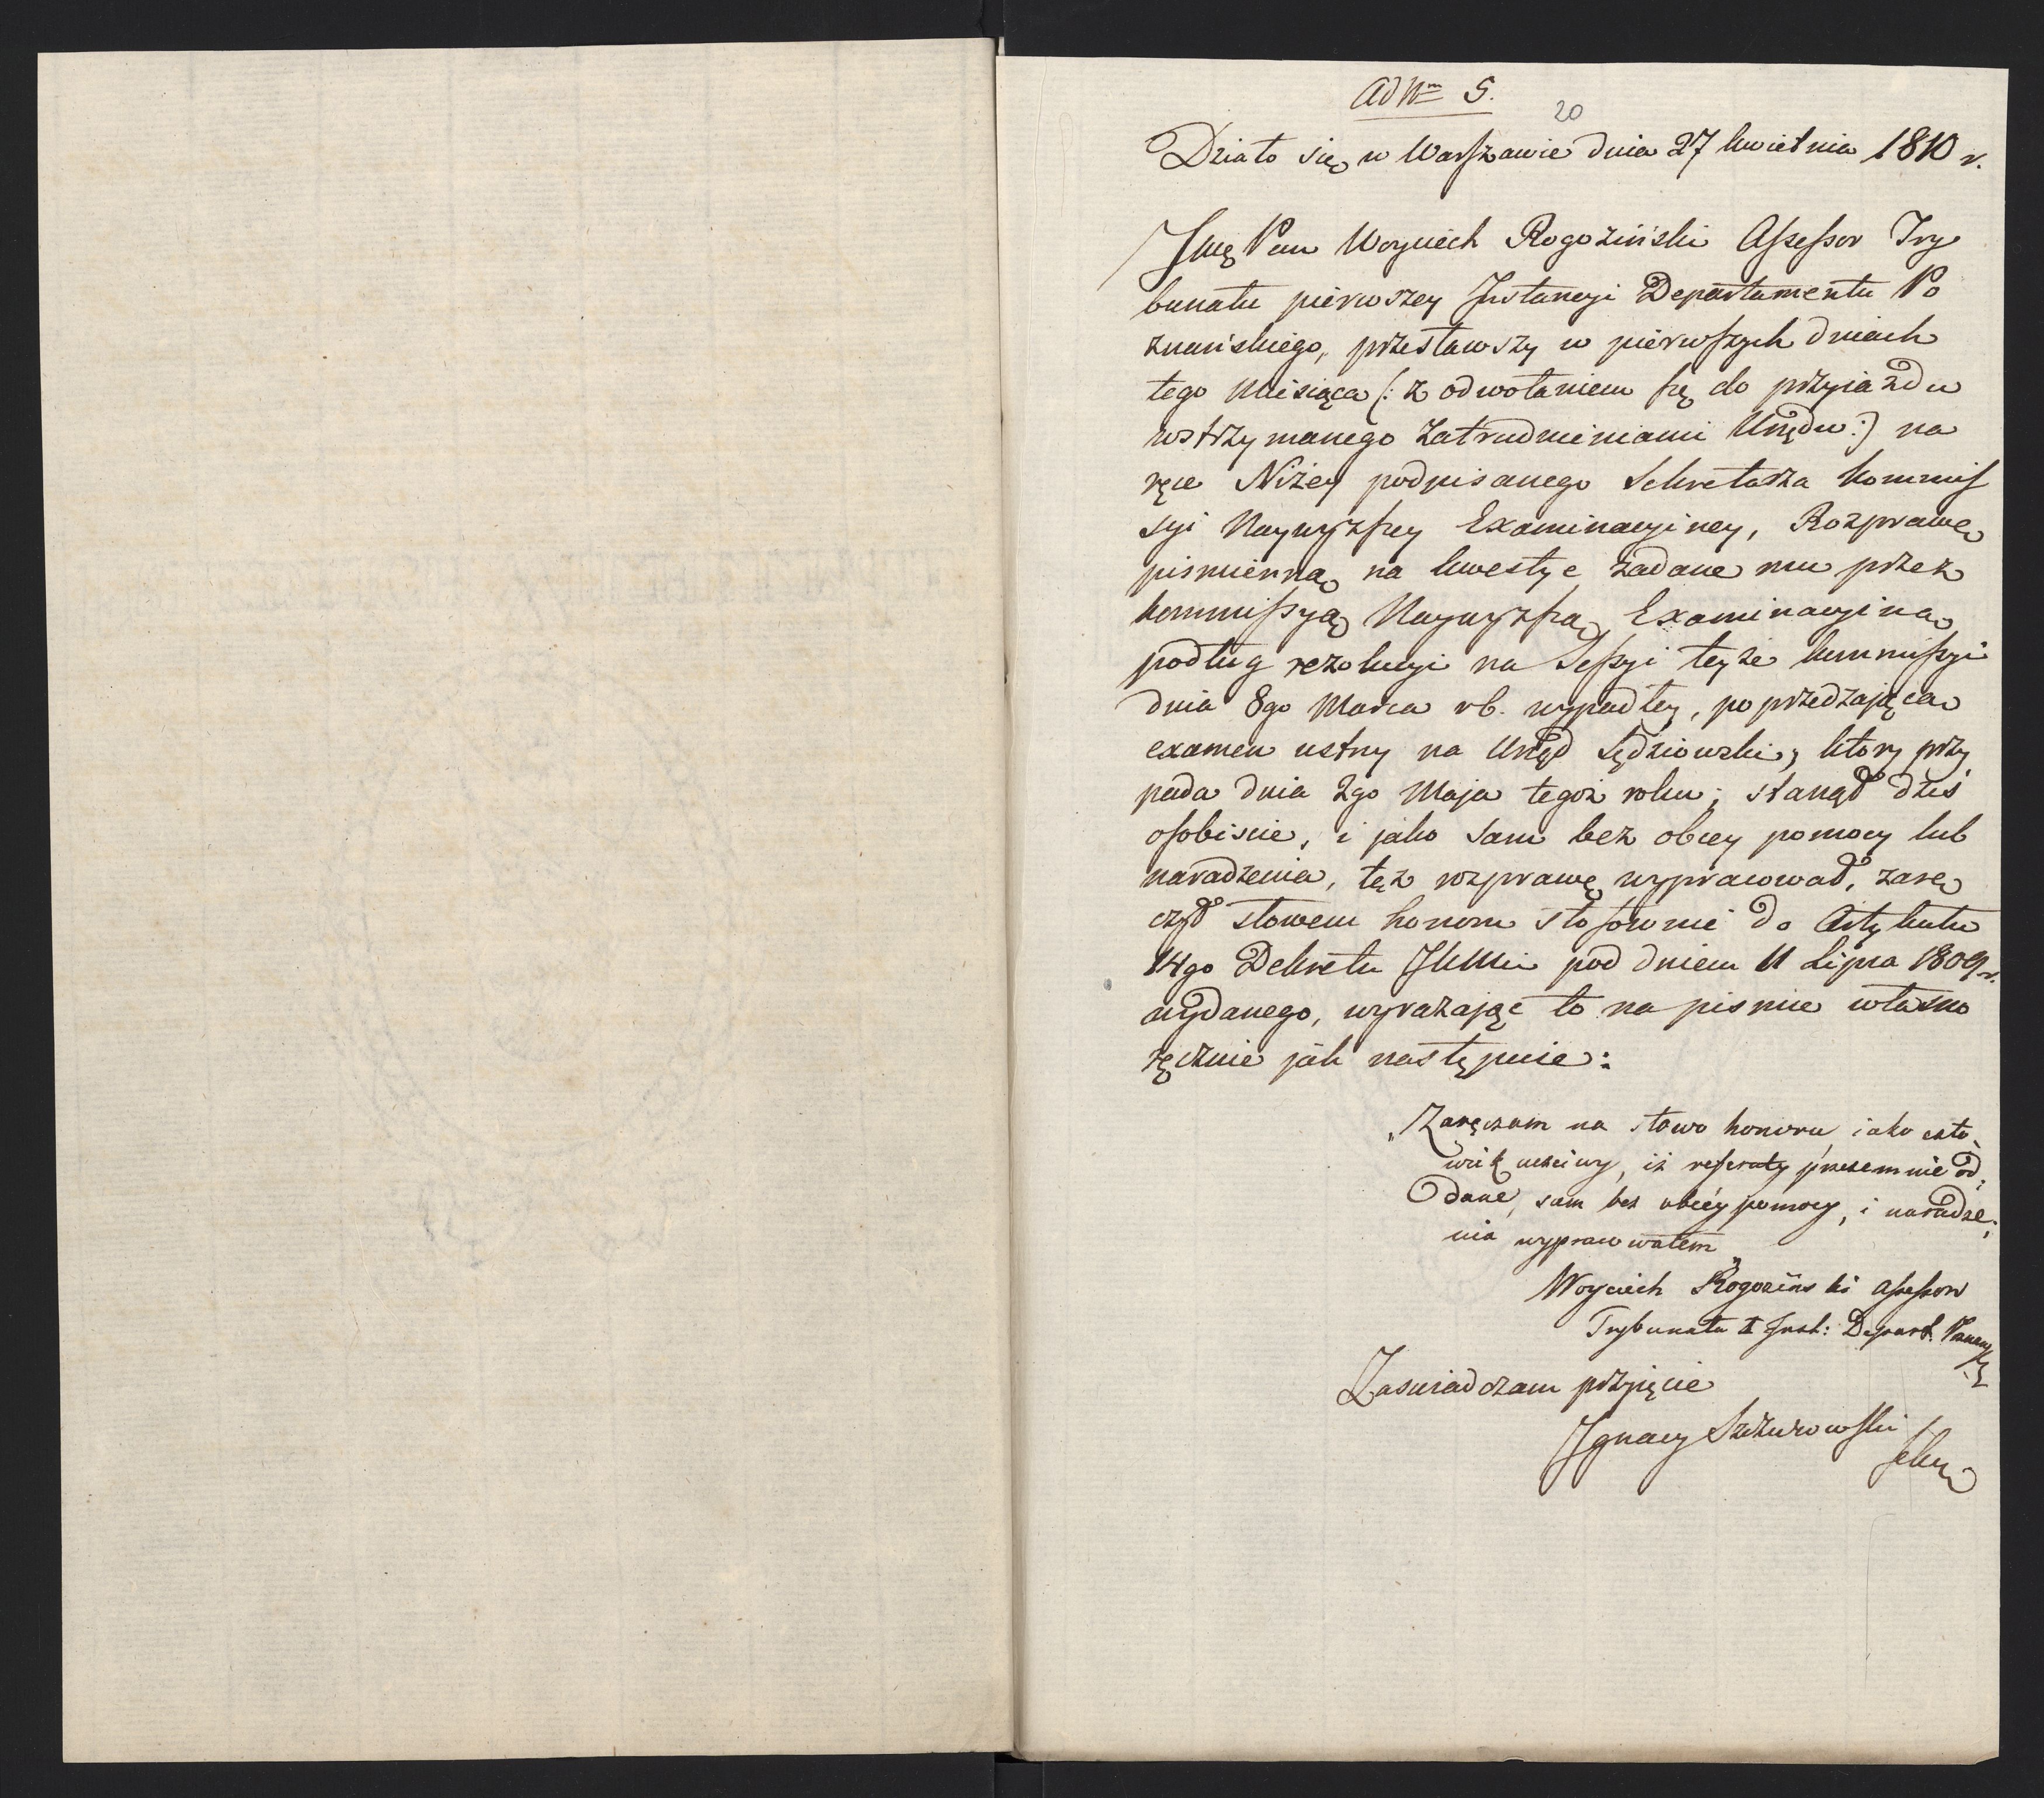 Ad Nm 5.
20
Działo się w Warszawie dnia 27 kwietnia 1810 r.
Jmę Pan Woyciech Rogoziński Assessor Try
bunału pierwszey Instancyi Departamentu Po
znańskiego, przesławszy w pierwszych dniach
tego Miesiąca (: z odwołaniem się do przyiazdu
wstrzymanego zatrudnieniami Urzędu :) na
ręce Niżey podpisanego Sekretarza Kommis
syi Naywyższey Examinacyiney, Rozprawę
pismienną na kwestye zadane mu przez
kommissyą Naywyższą Examinacyiną
podług rezolucyi na Sessyi teyże kommissyi
dnia 8go Marca rb. wypadłey, poprzedzającą
examen ustny na Urząd Sędziowski, ktory przy
pada dnia 2go Maja tegoż roku; stanął dziś
osobiscie, i jako sam bez obcey pomocy lub
naradzenia, tęż rozprawę wypracował, zarę
czył słowem honoru stosownie do Artykułu
14go Dekretu JKMci pod dniem 11 Lipca 1809 r.
wydanego, wyrażając to na pismie własno
ręcznie jak następuie:
„Zaręczam na słowo honoru, iako czło-
wiek uczciwy, iż referaty przezemnie od-
dane, sam bez obcéy pomocy, i naradze-
nia wypracowałem„
Woyciech Rogoziński Assessor
Trybunału I Inst: Depart. Poznań
Zaswiadczam przyięcie
Ignacy Szczurowski
Sekr